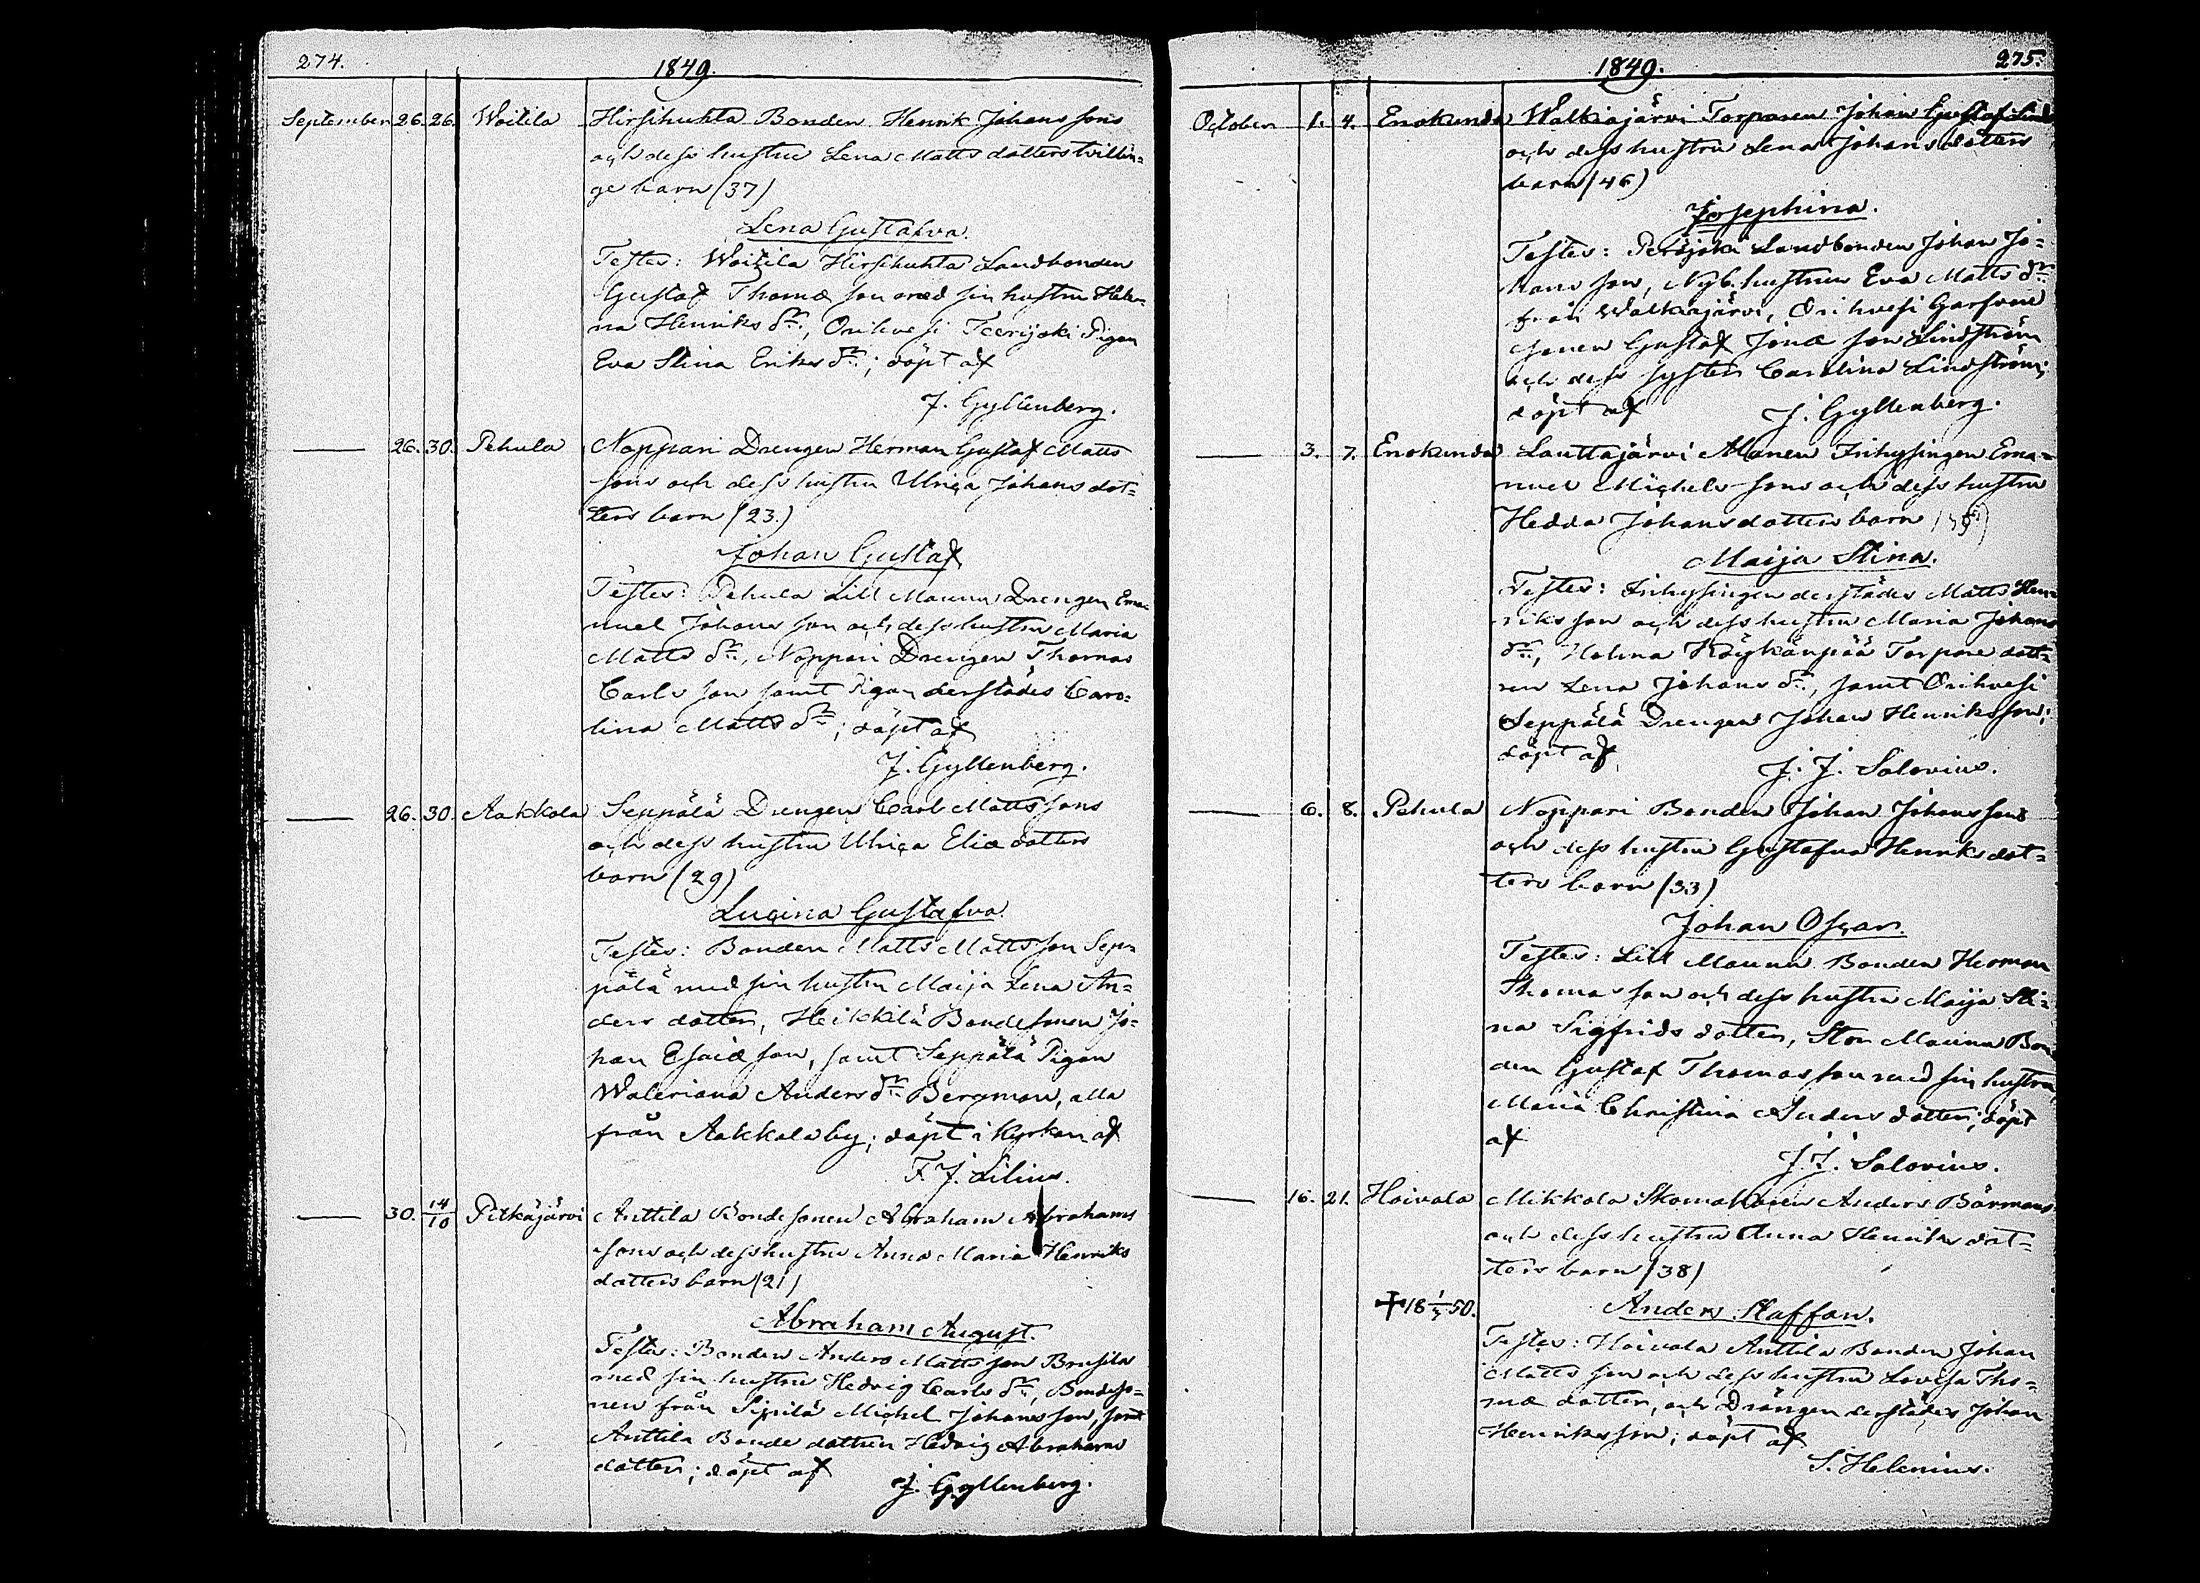 274.
1849.
September 26. 26. Woitila Hirsihuhta Bonden Henrik Johans sons
och dess hustru Lena Matts dotters tvillin=
ge barn (37)
Lena Gustafva.
Testes: Woitila Hirsihuhta Landbonden
Gustaf Thomæ son med sin hustru Hele=
na Henriks dr., Orihvesi Teerijoki Pigan
Eva Stina Eriks dr.; döpt af
J. Gyllenberg.
26. 30. Pehula Noppari Drengen Herman Gustaf Matts
sons och dess hustru Ulrica Johans dot=
ters barn (23.)
Johan Gustaf
Testes: Pehula Lill Maunu Drengen Ema=
nuel Johans son och dess hustru Maria
Matts dr., Noppari Drengen Thomas
Carls son samt Pigan derstädes Caro=
lina Matts dr.; döpt af
J. Gyllenberg.
26. 30. Aakkola Seppälä Drengen Carl Matts sons
och dess hustru Ulrica Eliæ dotters
barn (29)
Lucina Gustafva.
Testes: Bonden Matts Matts son Sep=
pälä med sin hustru Maija Lena An=
ders dotter, Heikkilä Bondesonen Jo=
han Esaiæ son, samt Seppälä Pigan
Waleriana Anders dr. Bergman, alla
från Aakkola by; döpt i Kyrkan af
F. J. Lilius.
30. 14/10 Pitkäjärvi Anttila Bondesonen Abraham Abrahams
sons och dess hustru Anna Maria Henriks
dotters barn (21)
Abraham August.
Testes: Bonden Anders Matts son Brusila
med sin hustru Hedvig Carls dr., Bondeso=
nen från Sipilä Michel Johans son, samt
Anttila Bonde dottren Hedvig Abrahams
dotter; döpt af
J. Gyllenberg.
1849.
275.
October 1. 4. Enokunda Walkiajärvi Torparen Johan Gustaf
och dess hustru Lena Johans dotters
barn (46)
Josephina.
Testes: Landbonden Johan Jo=
hans son, Nyb. hustrun Eva Matts dr.
från Walkiajärvi, Orihvesi Garfvare
sonen Gustaf Jonæ son Lindström
och dess syster Carolina Lindström;
döpt af J. Gyllenberg.
3. 7. Enokunda Lauttajärvi Inhysingen Ema=
nuel Michels sons och dess hustru
Hedda Johans dotters barn
Maija Stina.
Testes: Inhysingen derstädes Matts Hen=
riks son och dess hustru Maria Johans
dr., Torpare dott=
ren Lena Johans dr., samt Orihvesi
Seppälä Drengen Johan Henriks son;
döpt af
J. J. Salovius.
6. 8. Pehula Noppari Bonden Johan Johans sons
och dess hustru Gustafva Henriks dot=
ters barn (33)
Johan Oscar.
Testes: Lill Maunu Bonden Herman
Thomas son och dess hustru Maija Sti=
na Sigfrids dotter, Stor Maunu Bon=
den Gustaf Thomas son med sin hustru
Maria Christina Anders dotter; döpt
af
J. J. Salovius.
16. 21. Hoivala Mikkola Skomakaren Anders Bärmans
och dess hustru Anna Henriks dot=
ters barn (38)
Anders Staffan.
Testes: Hoivala Anttila Bonden Johan
Matts son och dess hustru Lovisa Tho=
mæ dotter, och Drängen derstädes Johan
Henriks son; döpt af
S. Helenius.